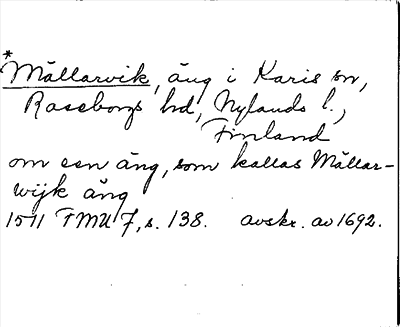 *
Mällarvik, äng i Karis sn,
Raseborgs hd, Nylands l.,
Finland
om een äng, som kallas Mällar-
wijk äng
1511 FMU 7, s. 138. avskr. av 1692.